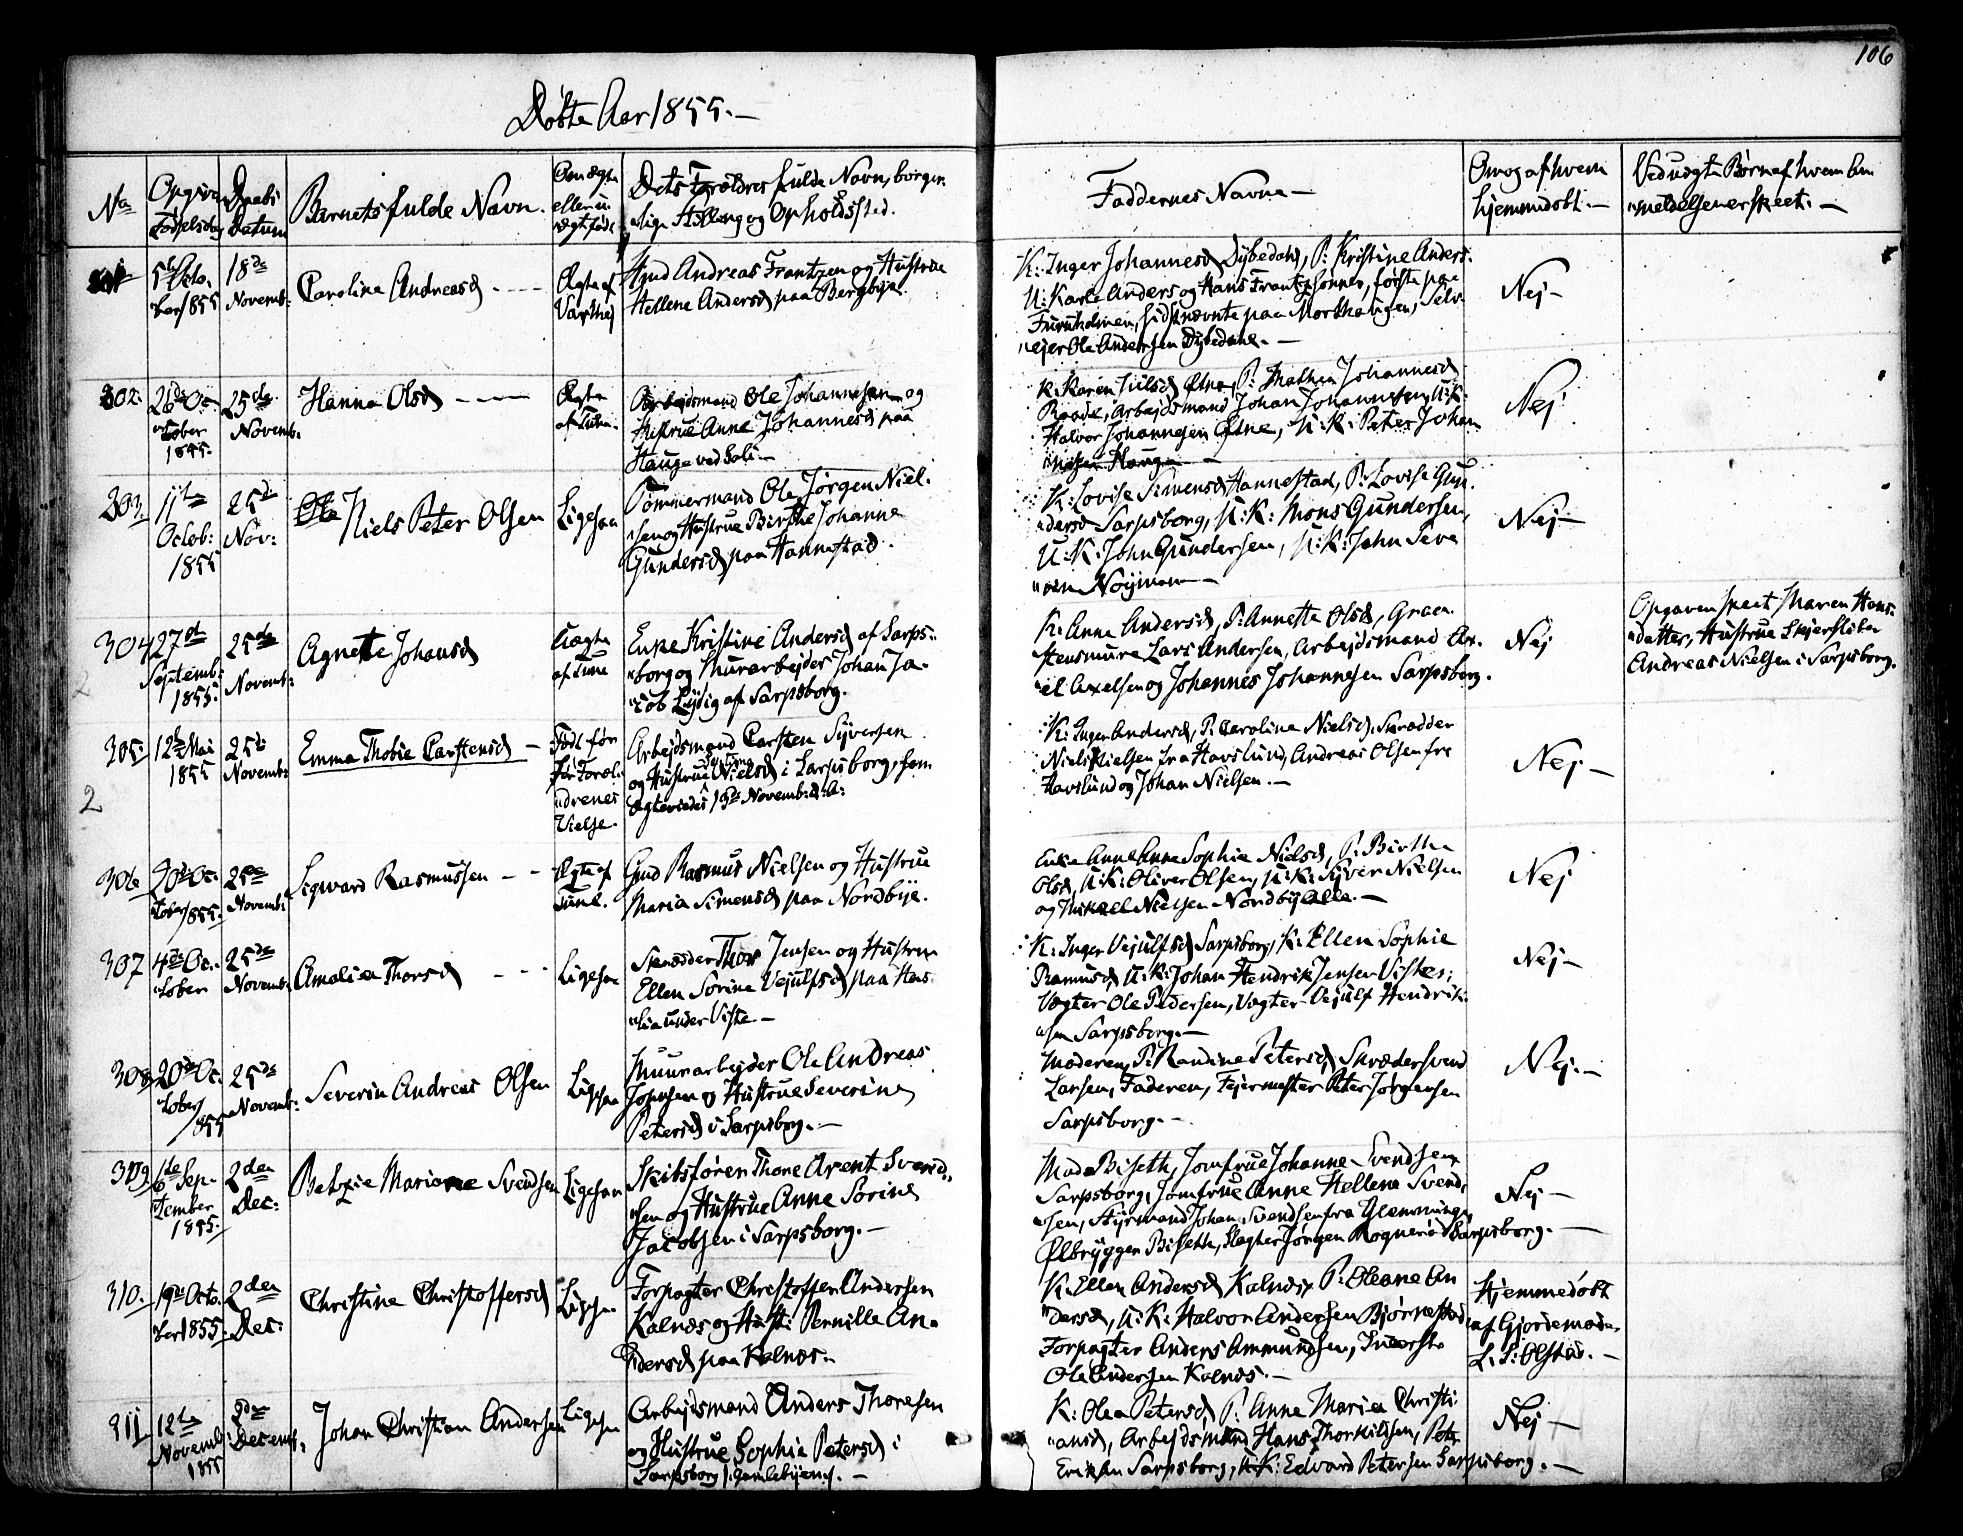 106
Døbte Aar 1855.—
No
Opgiven Fødselsdag
Daabs Datum
Barnets fulde Navn.
Om ægte eller uægte født.
Dets Forældres fulde Navn, borgerlige Stilling og Opholdssted.
Faddernes Navne—
Om og af hvem hjemmedøbt.—
Ved uægte Børn af hvem Anmeldelsen er skeet.—
5te Octo.
ber 1855
18de
Novemb:
Caroline Andreasd
Ægte af
Varteig
Gmd Andreas Frantzen og Hustrue
Hellene Andersd paa Bergbye.
K: Inger Johannesd Dybedahl, P: Kristine Anders.
U: Karle Anders og Hans Frantzsønner, første paa
Furuholmen, sidstnævnte paa Morkhaugen, Selv-
"ejer Ole Andersen Dybedahl.—
Nej—
302.
26de Oc-
"tober
1855.
25de
Novemb.
Hanna Olsd
Ægte
af Tune.
Arbejdsmand Ole Johannesen og
Hustrue Anne Johannesd paa
Hauge ved Soli—
K: Karen Nilsd P: Mathea Johannesd
Raade, Arbejdsmand Johan Johannesen, U:K:
Halvor Johannesen U:K: Peter Johan-
"nesen Haug—
Nej
303.
11te
Octob:
1855
25de
Nov:
Niels Peter Olsen
Ligesaa
Tømmermand Ole Jørgen Niel-
"sen og Hustrue Birthe Johanne
Gundersd paa Hannestad.
K: Lovise Simensd Hannestad, P: Lovise Gun-
"dersd Sarpsborg, U:K: Mons Gundersen,
U:K: John Gundersen, U:K: John Seve
Nej—
304
27de
Septemb:
1855.
25de
Novemb:
Agnethe Johansd
Uægte
af Tune
Enke Kristine Andersd af Sarps-
"borg og Muurarbejder Johan Ja-
"cob Lydig af Sarpsborg.
K: Anna Andersd, P: Annette Olsd, Graa-
steensmurer Lars Andersen, Arbejdsmand Ax-
"el Axelsen og Johannes Johannesen Sarpsborg.
Nej
Opgaven skeet Maren Hans-
"datter, Hustrue Skjærsliber
Andreas Nielsen i Sarpsborg.
305.
12te Mai
1855
25de
Novemb:
Emma Thobie Carstensd —
Født før
Foræl-
"drenes
Vielse.
Arbejdsmand Carsten Syversen
og Hustrue Nielsd i Sarpsborg, som
ægteviedes 19de Novemb: d:A:
K: Inger Andersd, P: Caroline Nielsd, Skrædder
Niels Nielsen fra Havslund, Andreas Olsen fra
Havslund og Johan Nielsen.—
Nej—
2
306
20de Oc-
"tober 1855.
25de
Novemb:
Sigvard Rasmussen
Ægte af
Tune.
Gmd Rasmus Nielsen og Hustrue
Maria Simensd paa Nordbye.
Enke Anne Anne Sophie Nielsd, P: Birthe
Olsd, U:K: Oliver Olsen, U:K: Syver Nielsen
og Mikael Nielsen Nordby Alle.—
Nej
307
4de Oc-
"tober
25de
Novemb:
Amalia Thorsd
Ligesaa
Skrædder Thor Jensen og Hustrue
Ellen Sorine Vejulfsd paa Has-
"lia under Viste—
K: Inger Vejulfsd Sarpsborg, K: Ellen Sophie
Rasmusd U:K: Johan Hendrik Jensen Visten;
Vægter Ole Pedersen, Vægter Vejulf Hendrik-
"sen Sarpsborg.—
Nej—
308
20de Oc-
"tober/
1855
25de
Novemb:
Severin Andreas Olsen
Ligesaa
Muurarbejder Ole Andreas
og Hustrue Severine
Petersd i Sarpsborg.—
Moderen, P: Randine Petersd, Skrædersvend
Larsen, Faderen, Fejermester Peter Jørgensen
Sarpsborg.—
Nej.—
309
6te Sep-
"tember
1855.
2den
Dec:
Betzie Mariane Svendsen
Ligesaa
Skibsfører Thore Arent Svend-
"sen og Hustrue Anne Sorine
Jacobsen i Sarpsborg.—
Mad: Biseth, Jomfrue Johanne Svendsen
Sarpsborg, Jomfrue Anne Hellene Svend-
"sen, Styrmand Johan Svendsen fra Glemminge,
Ølbrygger Biseth, Slagter Jørgen Rognerød Sarpsborg.—
Nej—
310.
19de Octo-
"ber 1855.
2den
Dec:
Christine Christoffersd
Ligesaa
Forpagter Christoffer Andersen
Kalnæs og Hust: Pernille An-
"dersd paa Kalnæs.—
K: Ellen Andersd Kalnæs, P: Oleane An-
"dersd, U:K: Halvor Andersen Bjørnestad,
Forpagter Anders Ammundsen, Inderste
Ole Andersen Kalnæs.—
Hjemmedøbt
af Gjordemoder
L. S: Olstad.—
311
12te
Novemb:
1855
2den
Decemb:
Johan Christian Andersen
Ligesaa
Arbejdsmand Anders Thoresen
og Hustrue Sophie Petersd i
Sarpsborg /: Gamlebyen :/.—
K: Olea Petersd, P: Anne Maria Christi-
"ansd, Arbejdsmand Hans Thorkildsen, Peter
Eriksen Sarpsborg, U:K: Edvard Petersen Sarpsborg.—
Nej—